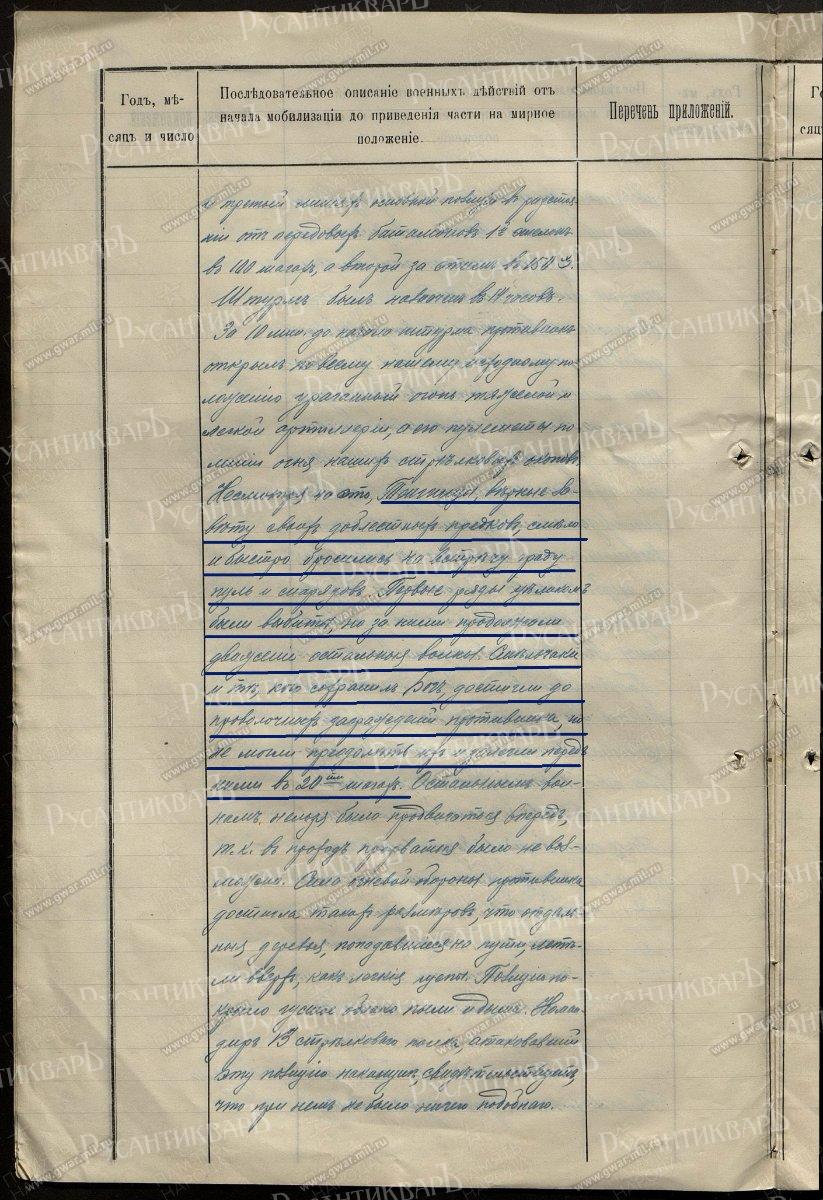 Годъ, мѣ-
сяцъ и число
Послѣдовательное описаніе военныхъ дѣйствій отъ
начала мобилизаціи до приведенія части на мирное
положеніе.
Перечень приложеній.
и третьей линіяхъ основной позиціи въ разстоя
ніи отъ передовыхъ баталіоновъ 1й эшелонъ
въ 100 шагахъ, а второй за этимъ въ 150
Штурмъ былъ назначенъ въ 14 часовъ.
За 10 мин. до начала штурма противникъ
открылъ по всему нашему исходному по
ложенію ураганный огонь тяжелой и
легкой артиллеріи, а его пулеметы по
линіи огня нашихъ стрѣлковыхъ окоповъ.
Несмотря на это, Тенгинцы, вѣрные за-
вѣту своихъ доблестныхъ предковъ смѣло
и быстро бросились на встрѣчу граду
пуль и снарядовъ. Первые ряды цѣликомъ
были выбиты, но за ними продолжали
движеніе остальныя волны. Смѣльчаки
и тѣ, кого сохранилъ Богъ, достигли до
проволочныхъ загражденій противника, но
не могли преодолѣть ихъ и залегли передъ
ними въ 20ти шагахъ. Остальнымъ вол-
намъ нельзя было продвигаться впередъ,
т.к. въ проходъ прорваться было невоз-
можно. Сила огневой обороны противника
достигла такихъ размѣровъ, что отдѣль
ныя деревья, попадавшіеся на пути, летѣ-
ли вверхъ, какъ легкія щепы. Позицію по-
крыло густое облако пыли и дыма. Коман-
диръ 13 стрѣлковаго полка, атаковавшій
эту позицію наканунѣ, свидѣтельствуетъ,
что при немъ не было ничего подобнаго.
Русантикваръ
www.gwar.mil.ru